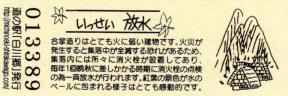 いっせい放水
合掌造りはとても火に弱い建物です。火災が
発生すると集落中が全滅する恐れがあるため、
集落内には所々に消火栓が設置してあり、
毎年1回晩秋に差しかかる時期に消火栓の点検
の為一斉放水が行われます。紅葉の景色が水の
ベールに包まれる様子はとても感動的です。
013389
道の駅「白川郷」発行